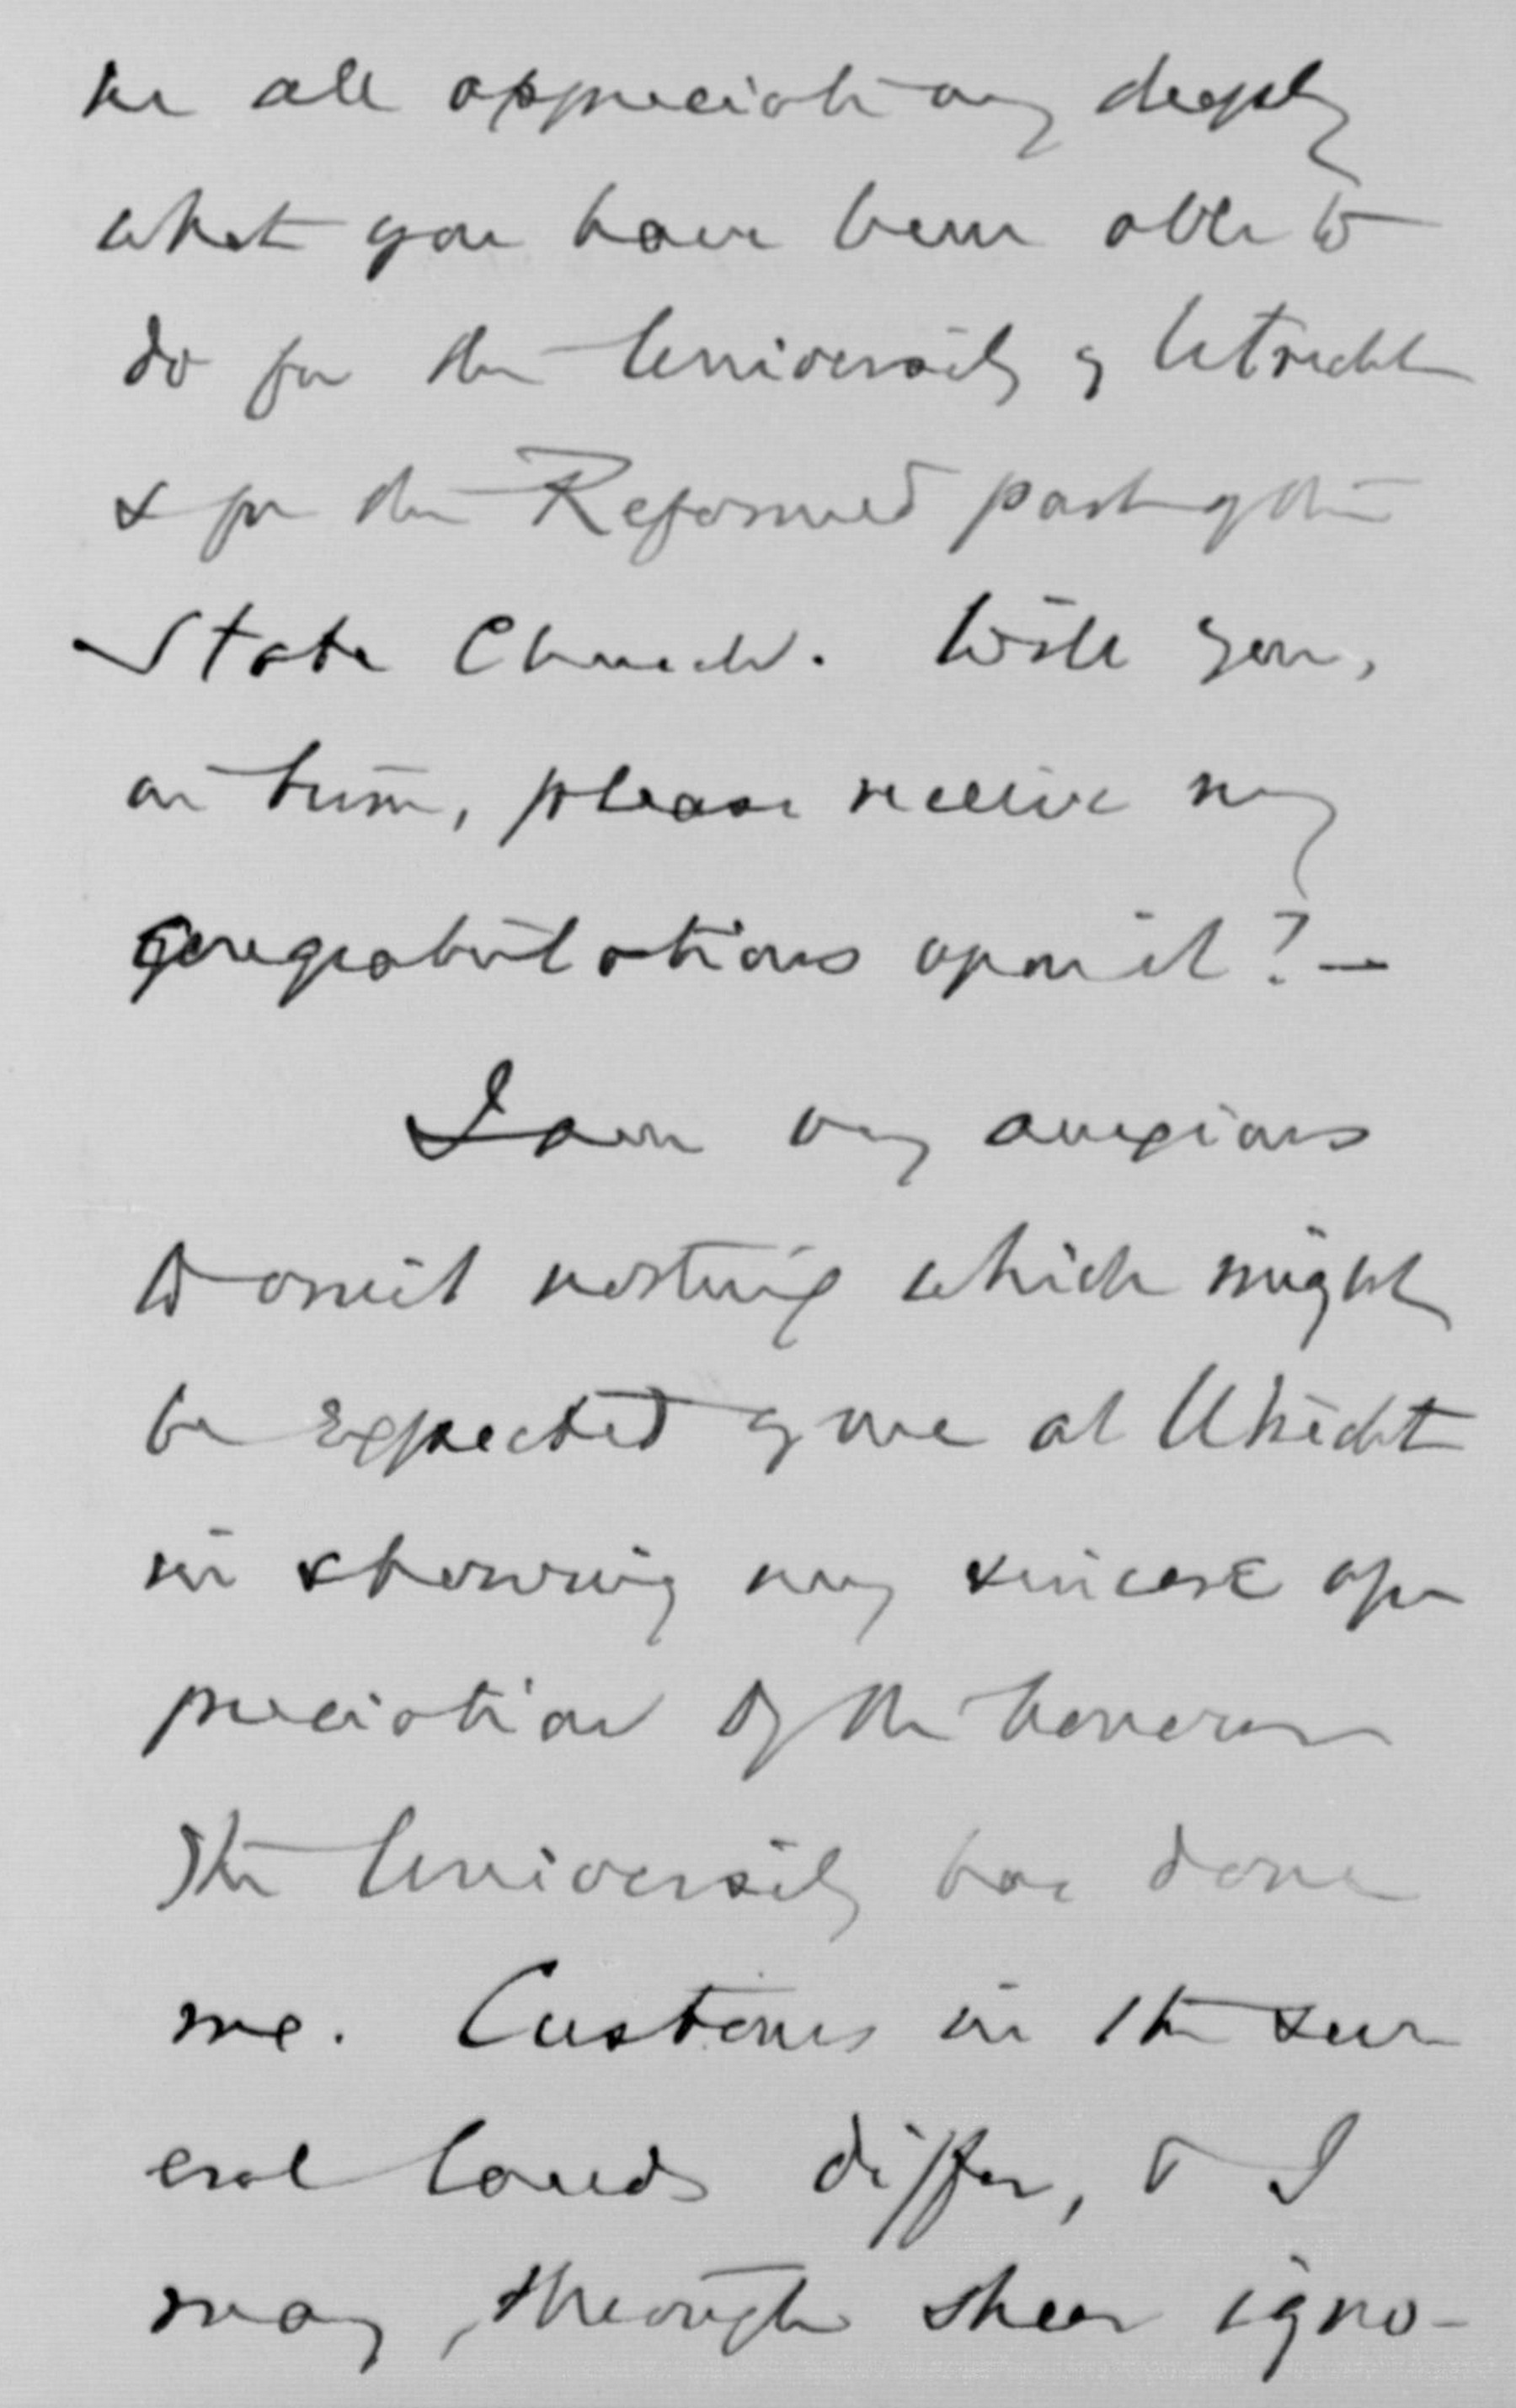 we all appreciate very deeply
what you have been able to
do for the University of Utrecht
& for the Reformed part of the
State Church. Will you,
in turn, please receive my
congratulations upon it? —
I am very anxious
to omit nothing which might
be expected of me at Utrecht
in showing my sincere ap
preciation of the honour
the University has done
me. Customs in the sev
eral lands differ, & I
may, through sheer igno-